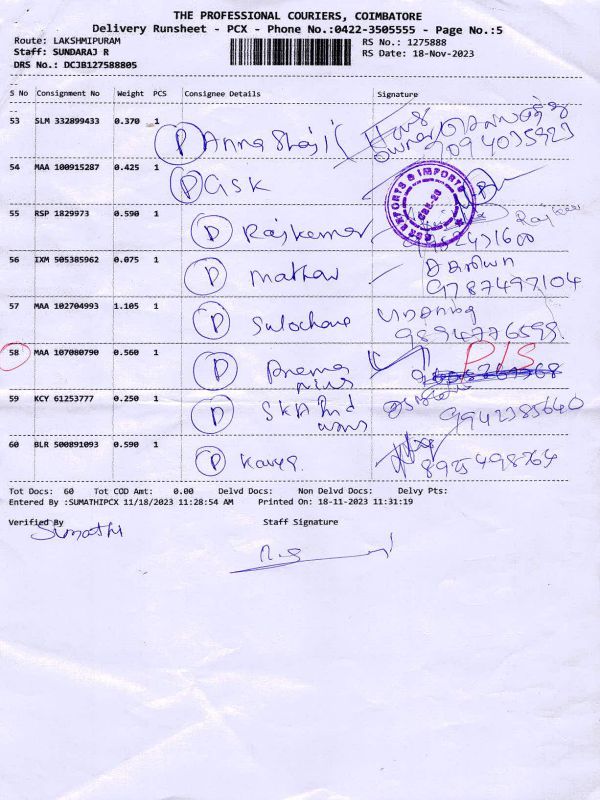 THE PROFESSIONAL COURIERS, COIMBATORE
Delivery Runsheet - PCX - Phone No.:0422-3505555 - Page No.:5
Route: LAKSHMIPURAM
Staff: SUNDARAJ R
DRS No.: DCJB127588805
RS No.: 1275888
RS Date: 18-Nov-2023
S No Consignment No Weight PCS Consignee Details Signature
53 SLM 332899433 0.370 1 D Anna Shaji
owner
9094035923
54 MAA 100915287 0.425 1 D GSK
EXPORTS & IMPORTS
55 RSP 1829973 0.590 1 D Rajkumar
56 IXM 505385962 0.075 1 D mathav
9787497104
57 MAA 102704993 1.105 1 D Sulochana
9894776599
58 MAA 107080790 0.560 1 D Prema
P/S
59 KCY 61253777 0.250 1 D SKA Ind
9942385640
60 BLR 500891093 0.590 1 D Kavya
8925498764
Tot Docs: 60 Tot COD Amt: 0.00 Delvd Docs: Non Delvd Docs: Delvy Pts:
Entered By :SUMATHIPCX 11/18/2023 11:28:54 AM Printed On: 18-11-2023 11:31:19
Verified By Staff Signature
Sumathi